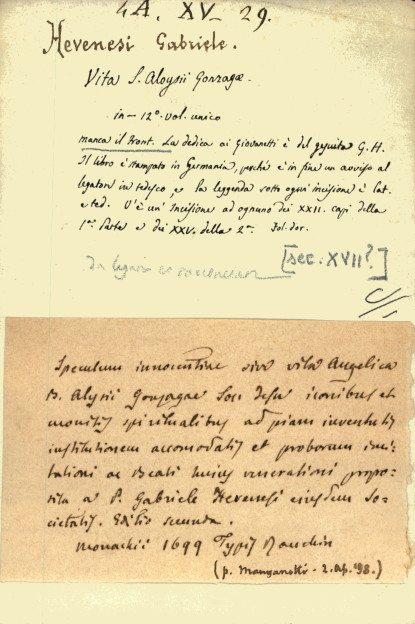 4A. XV- 29.
Hevenesi Gabriele.
Vita S. Aloysii Gonzagæ.
in-12º. vol. unico
manca il front. La dedica ai Giovanetti è del gesuita G.H.
Il libro è stampato in Germania, perchè è in fine un avviso al
legatore in tedesco, e la leggenda sotto ogni incisione è lat.
e ted. V'è un' incisione ad ognuno dei XXII. capi della
1ª. Parte e dei XXV. della 2ª. Fol. dor.
[sec. XVII?]
da legare
Speculum innocentiae sive vita Angelica
B. Alysii Gonzagae Soc Jesu iconibus et
monitis spiritualibus ad piam iuventutis
institutionem accomodatis et proborum imi-
tationi ac Beati huius venerationi propo-
sita a P. Gabriele Hevenesi eiusdem So-
cietatis. Editio secunda.
Monachii 1699 Typis Rauchin
(p. Manganotti - 2. ap. '98.)